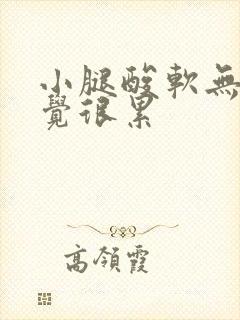 小腿酸軟無
覺很累
高領霞